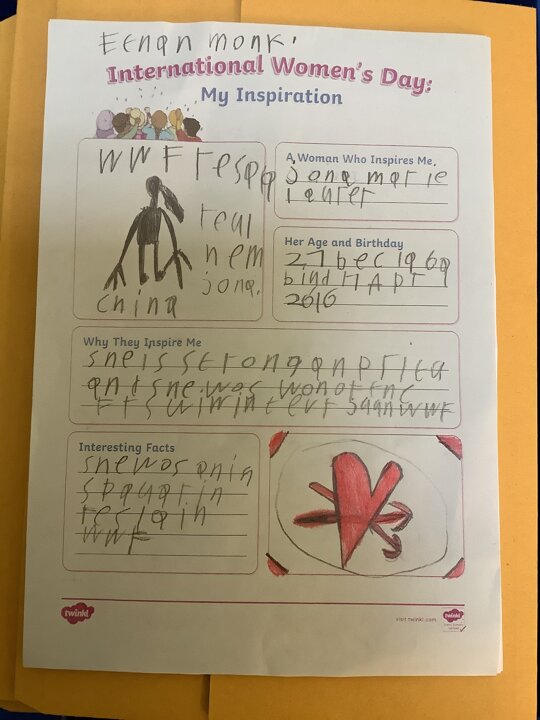 Eenan monk
International Women's Day:
My Inspiration
WWF respa
real
nem
jona.
china
A Woman Who Inspires Me
jona marie
laurer
Her Age and Birthday
27 bec 1969
bind 17 APr
2016
Why They Inspire Me
sne is strong an prita
and sne was won of tne
frs wiwin evr
WWF
Interesting Facts
sne was an in
in
in
WWF
twinkl
visit twinkl.com
twinkl